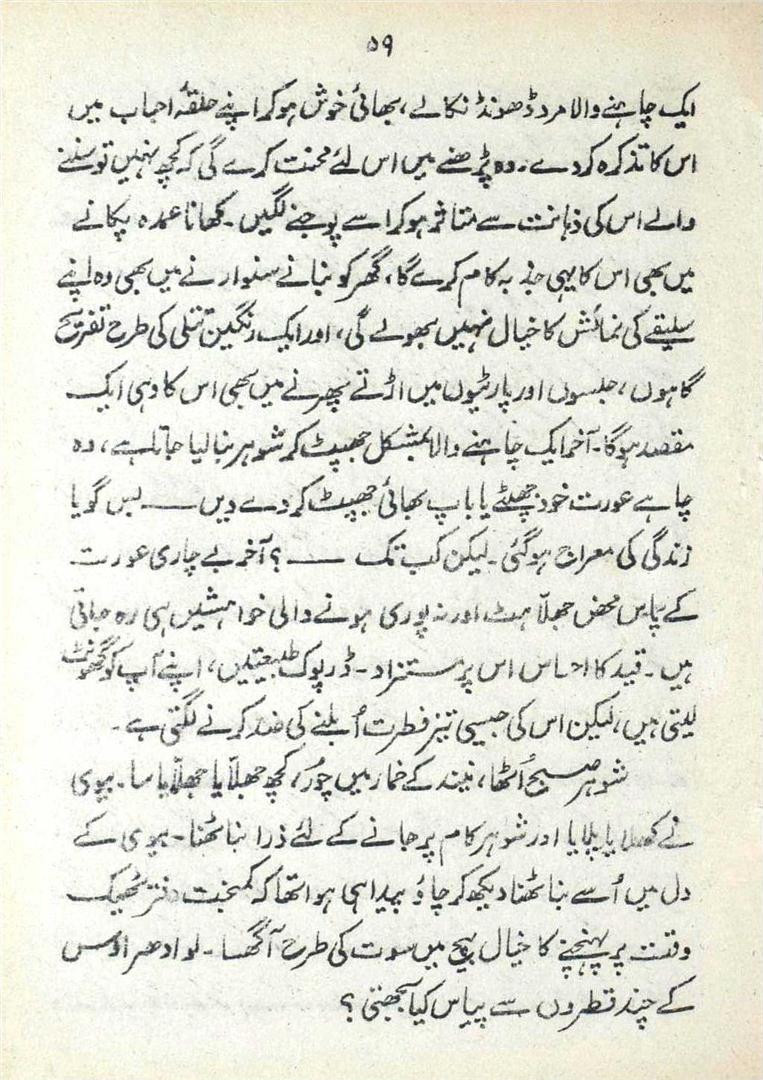 ۵۹
ایک چاہنے والا مرد ڈھونڈ نکالے، بھائی خوش ہو کر اپنے حلقۂ احباب میں
اس کا تذکرہ کر دے۔ وہ پڑھنے میں اس لئے محنت کرے گی کہ کچھ نہیں تو سننے
والے اس کی ذہانت سے متاثر ہو کر اسے پوجنے لگیں۔ کھانا عمدہ پکانے
میں بھی اس کا یہی جذبہ کام کرے گا، گھر کو بنانے سنوارنے میں بھی وہ اپنے
سلیقے کی نمائش کا خیال نہیں بھولے گی، اور ایک رنگین تتلی کی طرح تفریح
گاہوں، جلسوں اور پارٹیوں میں اڑتے پھرنے میں بھی اس کا وہی ایک
مقصد ہوگا۔ آخر ایک چاہنے والا بمشکل جھپٹ کر شوہر بنا لیا جاتا ہے، وہ
چاہے عورت خود جھپٹے یا باپ بھائی جھپٹ کر دے دیں — بس گویا
زندگی کی معراج ہو گئی۔ لیکن کب تک —؟ آخر بے چاری عورت
کے پاس محض جھلاّہٹ اور نہ پوری ہونے والی خواہشیں ہی رہ جاتی
ہیں۔ قید کا احساس اس پر مستزاد۔ ڈرپوک طبیعتیں، اپنے آپ کو گھونٹ
لیتی ہیں، لیکن اس کی جیسی تیز فطرت اُبلنے کی ضد کرنے لگتی ہے۔
شوہر صبح اُٹھا، نیند کے خمار میں چُور، کچھ جھلاّیا جھلاّیا سا۔ بیوی
نے کھلایا پلایا اور شوہر کام پر جانے کے لئے ذرا بنا ٹھنا۔ بیوی کے
دل میں اُسے بنا ٹھنا دیکھ کر چاؤ پیدا ہی ہوا تھا کہ کمبخت دفتر ٹھیک
وقت پر پہنچنے کا خیال بیچ میں سوت کی طرح آ گھسا۔ لو ادھر اوس
کے چند قطروں سے پیاس کیا بجھتی؟